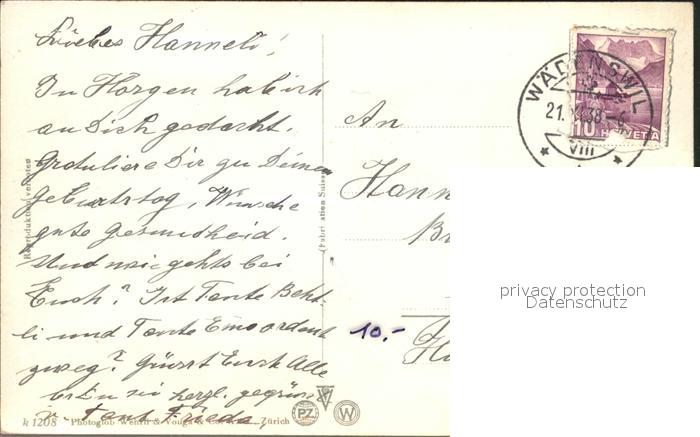 Liebes Hanneli!
In Horgen hab ich
an Dich gedacht.
Gratuliere Dir zu Deinem
Geburtstag, Wünsche
gute Gesundheid.
Und wie gehts bei
Euch? Ist Tante Bekt-
li und Tante Emo ordent
zweg? Grüsst Euch Alle
sei herzl. gegrüsst
v. Tant Frieda
An
Hann
WÄDENSWIL
21. 38-6
VIII
10 HELVETIA
10.-
k 1208 Photoglob Wehrli & Vouga & Zürich
PZ W
Reproduktion verboten
Suisse
privacy protection
Datenschutz